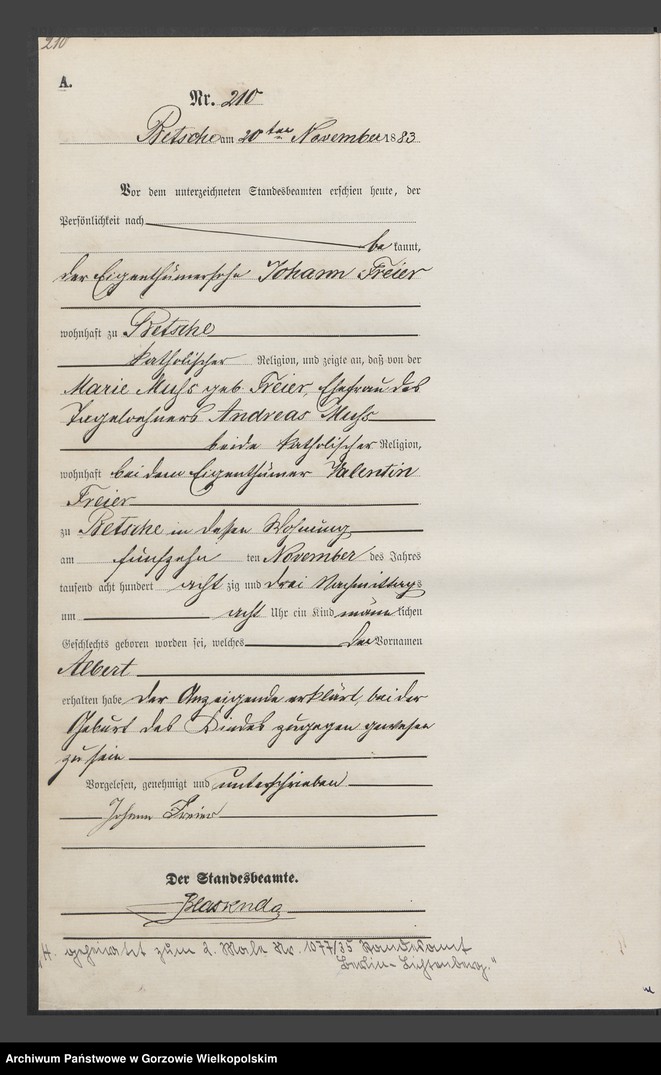 210
A.
Nr. 210
Betsche am 20ten November 1883
Vor dem unterzeichneten Standesbeamten erschien heute, der
Persönlichkeit nach
be kannt,
der Eigenthümersohn Johann Freier
wohnhaft zu Betsche
katholischer Religion, und zeigte an, daß von der
Marie Muhs geb. Freier, Ehefrau des
Tagelöhners Andreas Muhs
beide katholischer Religion,
wohnhaft bei dem Eigenthümer Valentin
Freier
zu Betsche in dessen Wohnung
am fünfzehn ten November des Jahres
tausend acht hundert acht zig und drei Nachmittags
um acht Uhr ein Kind männ lichen
Geschlechts geboren worden sei, welches den Vornamen
Albert
erhalten habe. Der Anzeigende erklärt, bei der
Geburt des Kindes zugegen gewesen
zu sein
Vorgelesen, genehmigt und unterschrieben
Johann Freier
Der Standesbeamte.
geheiratet zum 2. Male Nr. 1077/35 Standesamt
Berlin-Lichtenberg."
Archiwum Państwowe w Gorzowie Wielkopolskim